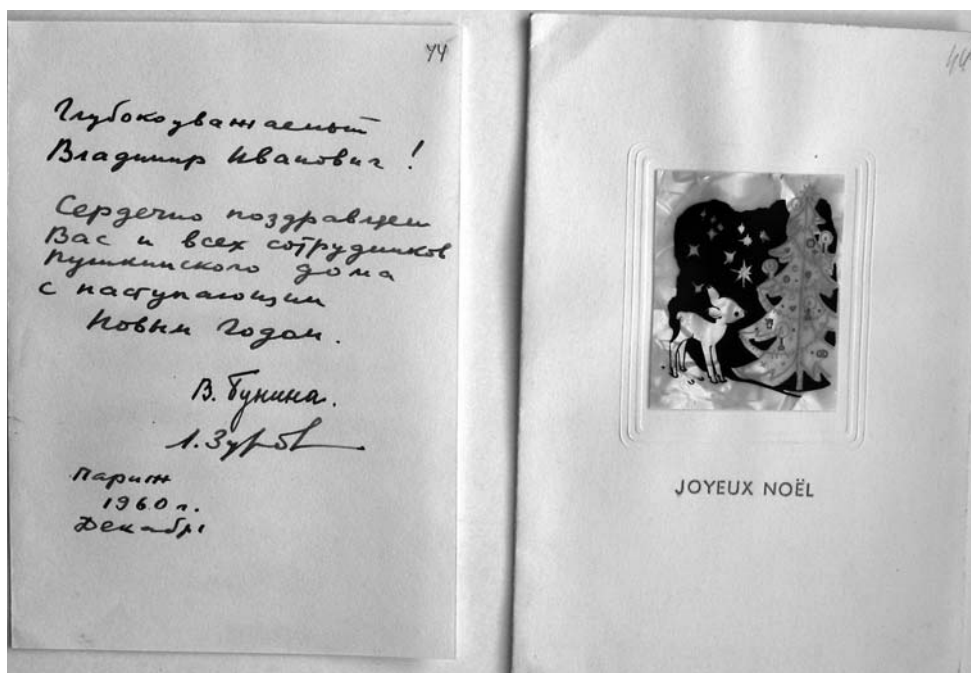 44
Глубокоуважаемый
Владимир Иванович!
Сердечно поздравляем
Вас и всех сотрудников
Пушкинского дома
с наступающим
Новым Годом.
В. Бунина.
Л. Зуров
Париж
1960 г.
Декабрь
44
JOYEUX NOËL